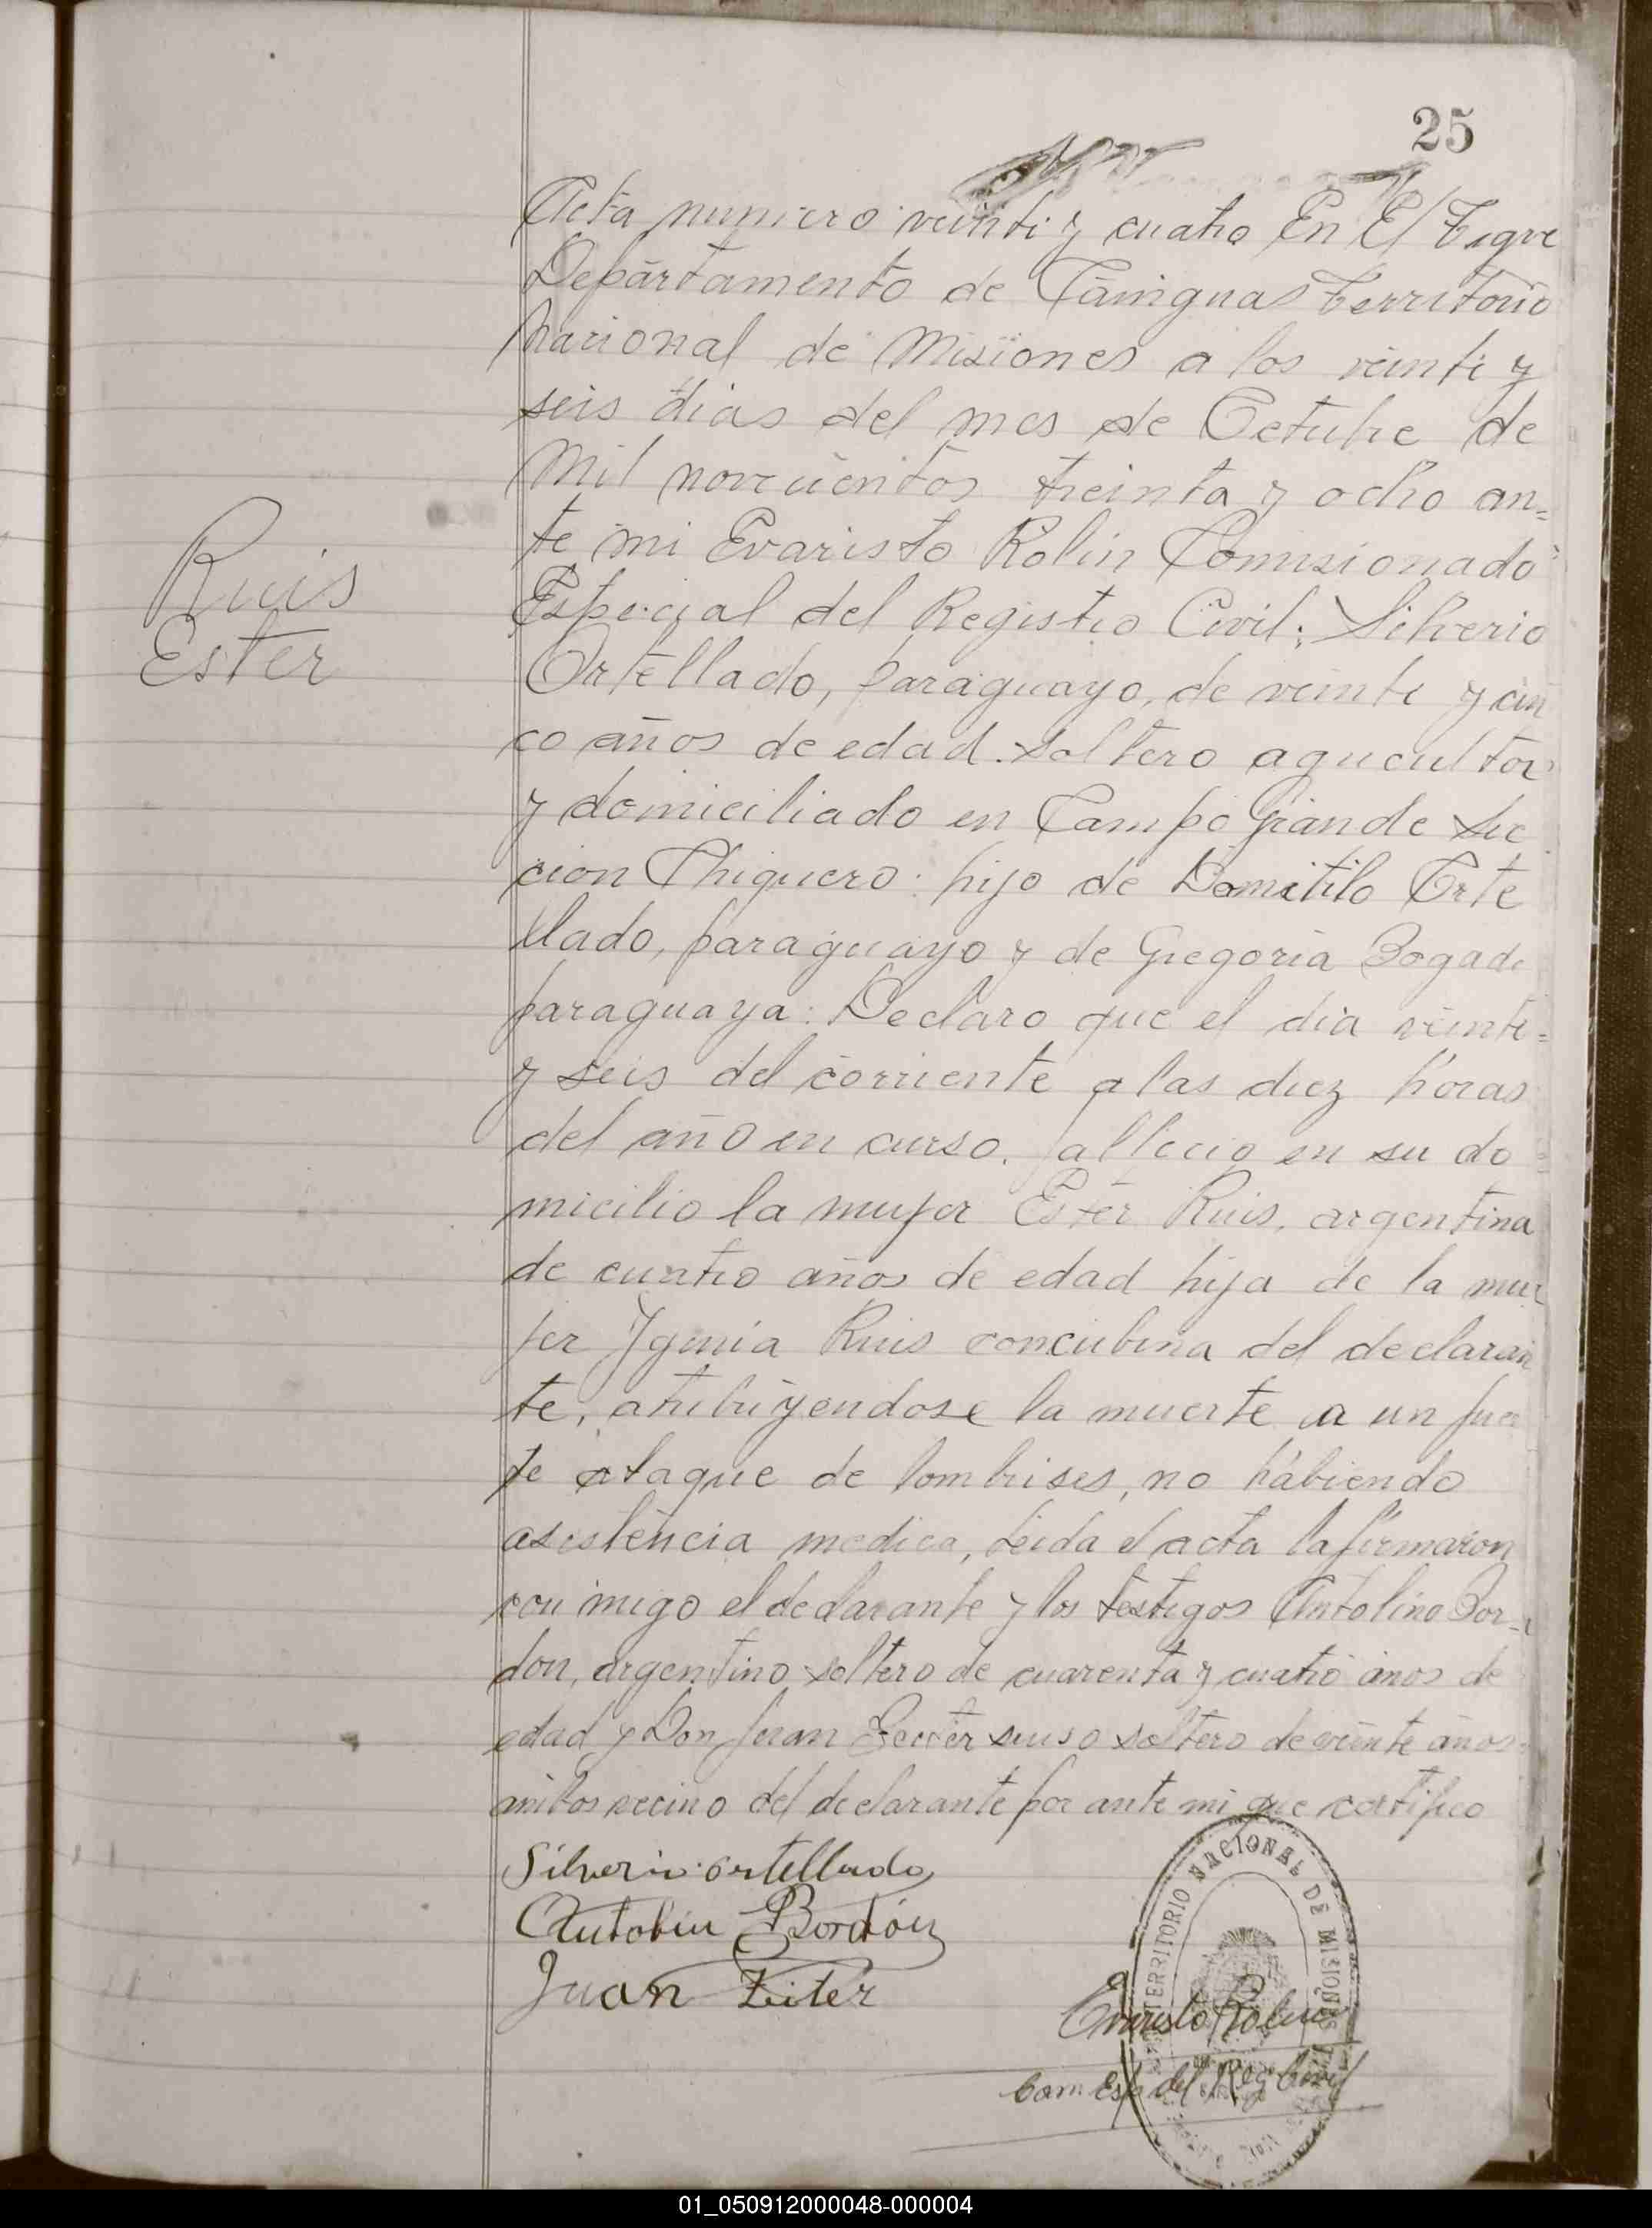 25
Acta numero veinti y cuatro En El Tigre
Departamento de Cainguas Territorio
Nacional de Misiones a los veinti y
seis dias del mes de Octubre de
Mil novecientos treinta y ocho an=
te mi Evaristo Rolin Comisionado
Especial del Registro Civil: Silverio
Ortellado, paraguayo, de veinti y cin
co años de edad. soltero agricultor
y domiciliado en Campo Grande Sec
cion Chiquero: hijo de Domitilo Orte
llado, paraguayo y de Gregoria Bogado
paraguaya: Declaro que el dia veinti=
y seis del corriente a las diez horas
del año en curso. fallecio en su do=
micilio la mujer Ester Ruis, argentina
de cuatro años de edad hija de la mu
jer Ygenia Ruis concubina del declaran
te, atribuyendose la muerte a un fuer
te ataque de lombrises, no habiendo
asistencia medica, Leida el acta la firmaron
con migo el declarante y los testigos Antolino Bor=
don, argentino soltero de cuarenta y cuatro años de
edad y Don Juan suiso soltero de veinte años
ambos vecino del declarante por ante mi que certifico
Ruis
Ester
Silverio ortellado
Antolin Bordón
Juan Zeiter
Evaristo Rolin
Com. Esp. del Reg Civil
TERRITORIO NACIONAL DE MISIONES
01_050912000048-000004